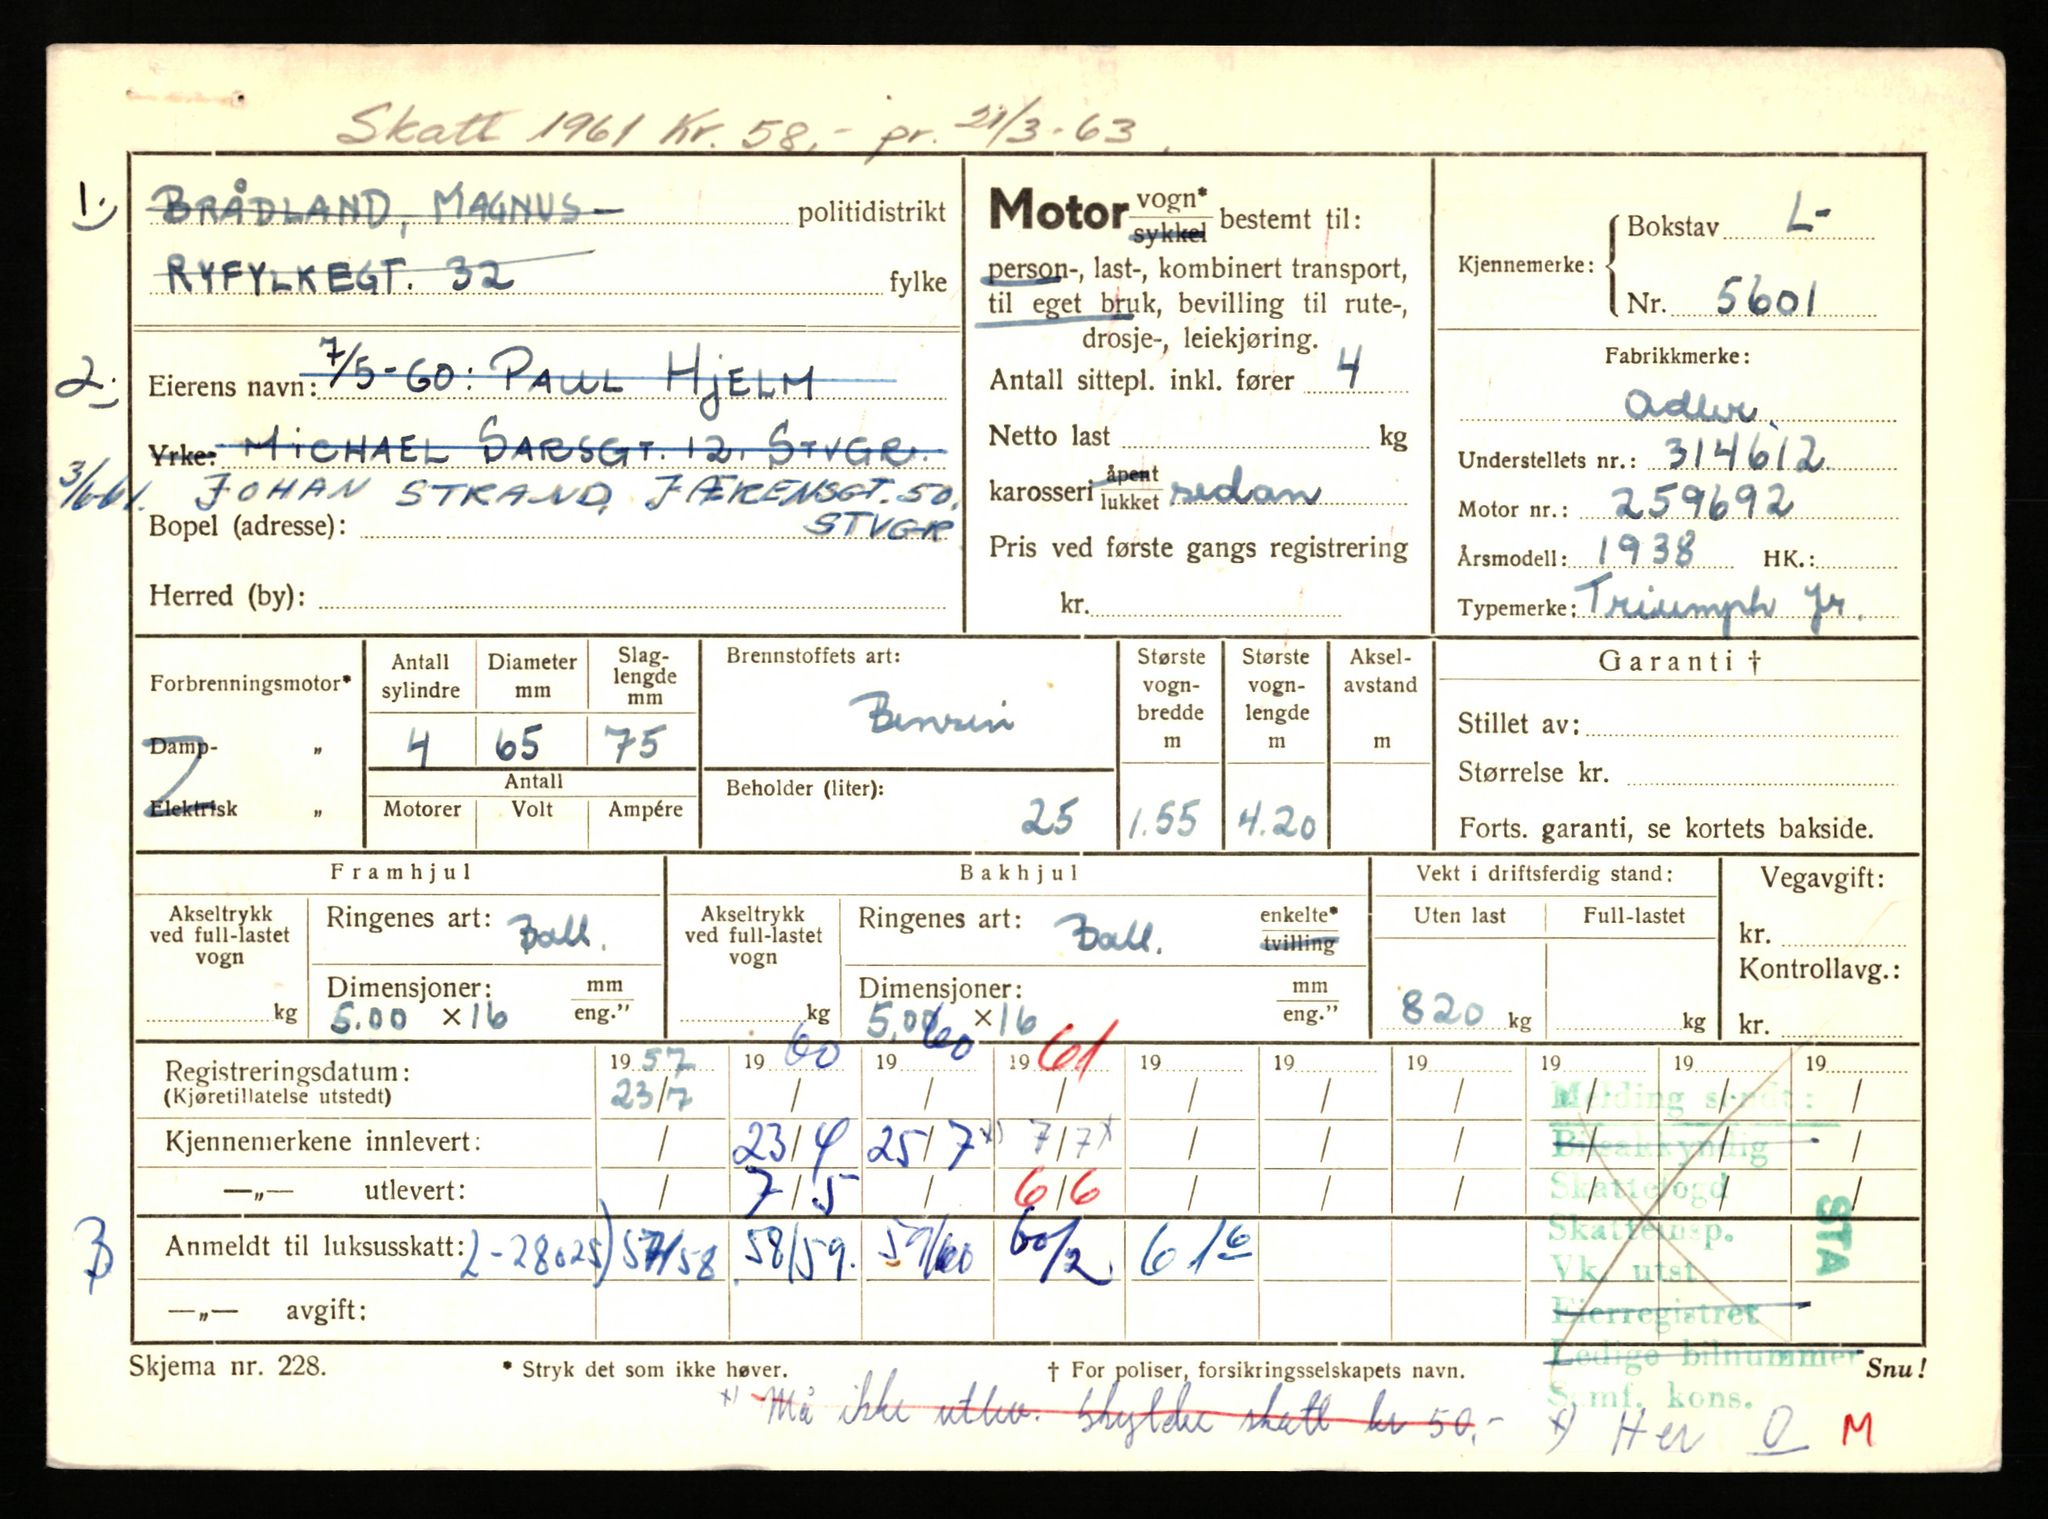 Skatt 1961 Kr. 58,- pr. 21/3-63
1. BRÅDLAND, MAGNUS politidistrikt
RYFYLKEGT. 32 fylke
2. Eierens navn: 7/5-60: PAUL HJELM
Yrke: MICHAEL SARSGT. 12. STVGR.
3/6-61. JOHAN STRAND, JÆRENSGT. 50,
Bopel (adresse): STVGR
Herred (by):
Motor vogn* sykkel bestemt til:
person-, last-, kombinert transport,
til eget bruk, bevilling til rute-,
drosje-, leiekjøring.
Antall sittepl. inkl. fører 4
Netto last kg
karosseri åpent lukket sedan
Pris ved første gangs registrering
kr.
Kjennemerke: Bokstav L-
Nr. 5601
Fabrikkmerke:
Adler
Understellets nr.: 314612
Motor nr.: 259692
Årsmodell: 1938 HK.:
Typemerke: Triumph Jr.
Forbrenningsmotor*
Damp- „
Elektrisk „
Antall sylindre Diameter mm Slaglengde mm
4 65 75
Antall
Motorer Volt Ampére
Brennstoffets art:
Bensin
Beholder (liter):
25
Største vognbredde m
1.55
Største vognlengde m
4.20
Akselavstand m
Garanti †
Stillet av:
Størrelse kr.
Forts. garanti, se kortets bakside.
Framhjul
Akseltrykk ved full-lastet vogn
kg
Ringenes art: Ball.
Dimensjoner: mm
5.00 × 16 eng."
Bakhjul
Akseltrykk ved full-lastet vogn
kg
Ringenes art: Ball. enkelte* tvilling
Dimensjoner: mm
5.00 × 16 eng."
Vekt i driftsferdig stand:
Uten last Full-lastet
820 kg kg
Vegavgift:
kr.
Kontrollavg.:
kr.
Registreringsdatum: 1957 1960 1960 1961 19 19 19 19 19 19
(Kjøretillatelse utstedt) 23/7 / / / / / / / / /
Kjennemerkene innlevert: / 23/4 25/7 x) 7/7 x / / / / / /
—„— utlevert: / 7/5 / 6/6 / / / / / /
Anmeldt til luksusskatt: L-28025) 57/58 58/59. 59/60 60/2 61 6
—„— avgift:
Melding sendt:
Bilsakkyndig
Skattefogd
Skatteinsp.
Vk. utst
Eierregistret
Ledige bilnummer
Somf. kons.
STA
Skjema nr. 228. * Stryk det som ikke høver. † For poliser, forsikringsselskapets navn. Snu!
x) Må ikke utlev. Skylder skatt kr 50,- x) Her O M